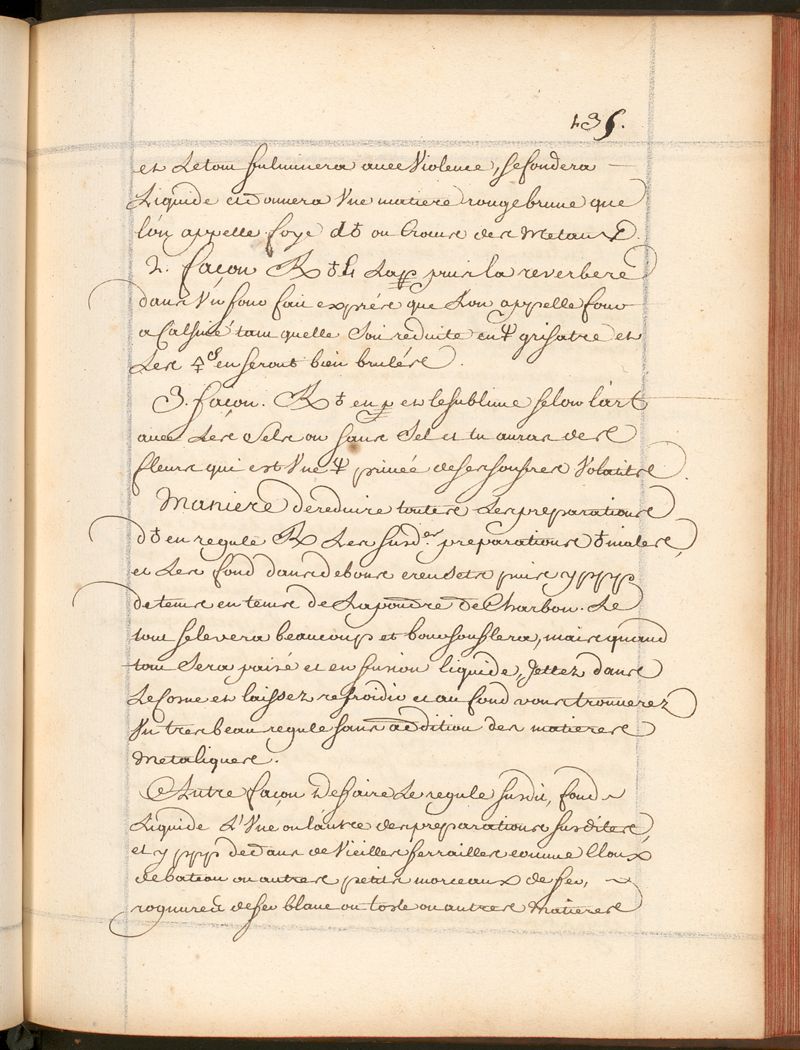 435.
et Le tout fulminera avec Violence, se fondera
Liquide et donnera Vne matiere rouge brune que
lón appelle foye d♁ ou Crocus des Metaux.
2. façon ℞ ♁ La puis la reverbere
dans Vn four fait exprés que Lon appelle four
a Calsiné tant quelle soit reduite en grisatre et
Les 🜍 en seront bien brulés.
3. façon. ℞ ♁ en et le sublime selon lárt
avec Les Sels ou sans Sel et tu auras des
fleurs qui est Vne privée de ses soufres Volatils.
Maniere de reduire toutes Les preparations
d♁ en regule ℞ Les susd.es preparations ♁niales,
et Les fond dans de bons creusets puis y
de tems en tems de La poudre de Charbon. Le
tout se levera beaucoup et boursouflera, mais quand
tout sera paisé et en fusion liquide, Jettez dans
Le Cosne et laissez refroidir et au fond vous trouverez
Vn tres beau regule sans addition des matieres
Metaliques.
Autre façon de faire Le regule susdit, fond
Liquide L'Vne ou láutre des preparations susdites,
et y dedans de Vieilles ferrailles comme Cloux
de bation ou autres petits morceaux de fer,
rognures de fer blanc ou tosle ou autres Matieres